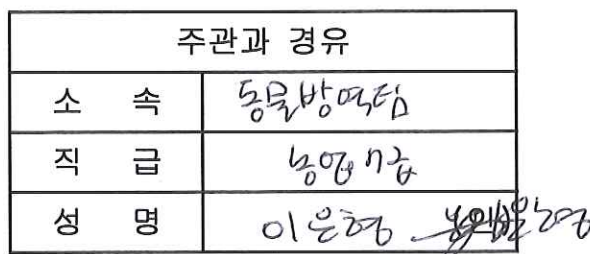 주관과 경유
소 속 동물방역팀
직 급 농업7급
성 명 이은형